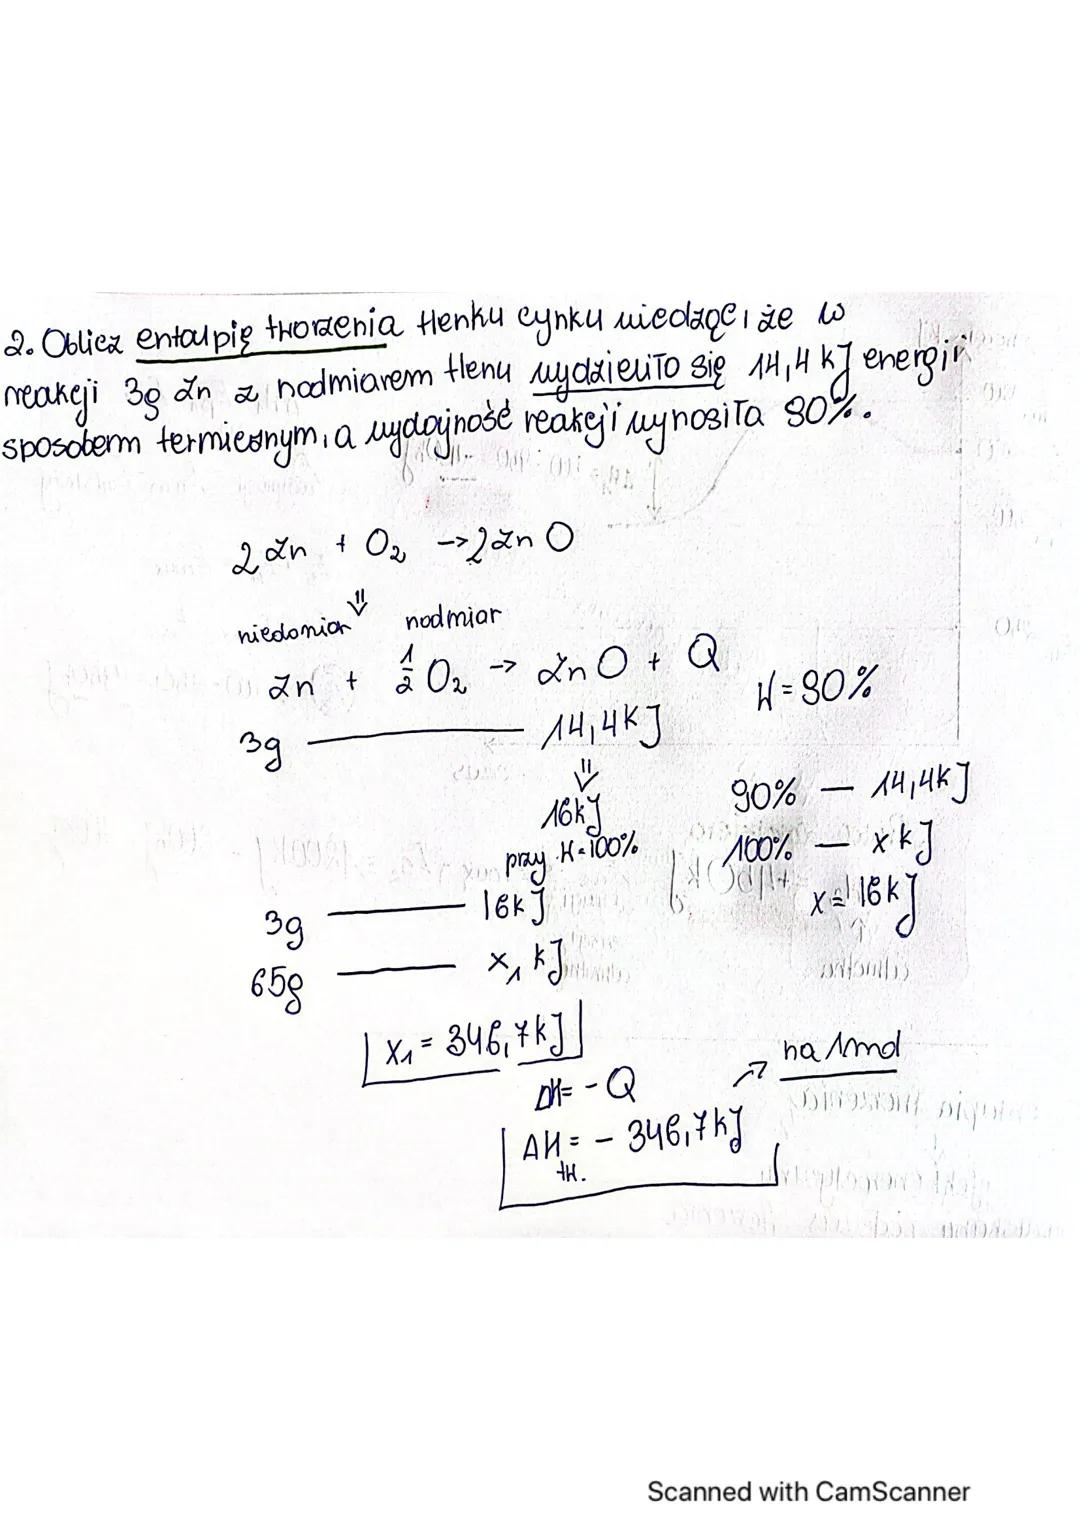 2. Oblicz entalpię tworzenia tlenku cynku wiedząc, że w
reakcji 3g Zn z nadmiarem tlenu wydzieliło się 14,4 kJ energii
sposobem termicznym, a wydajność reakcji wynosiła 90%.
2 Zn + O₂ -> 2 Zn O
⇓
niedomiar nadmiar
Zn + 1/2 O₂ -> Zn O + Q
W = 90%
3g — 14,4kJ
⇓
16kJ
przy W = 100%
90% — 14,4kJ
100% — x kJ
x = 16kJ
3g — 16kJ
65g — x₁ kJ
x₁ = 346,7kJ
ΔH = - Q
na 1mol
ΔH tw. = - 346,7kJ
Scanned with CamScanner